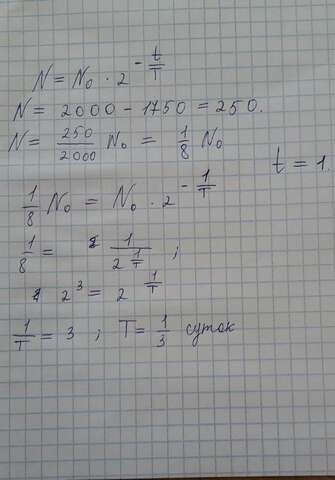 N = N₀ · 2^(-t/T)
N = 2000 - 1750 = 250.
N = 250/2000 N₀ = 1/8 N₀
t = 1.
1/8 N₀ = N₀ · 2^(-1/T)
1/8 = 1/2^(1/T) ;
2³ = 2^(1/T)
1/T = 3 ; T = 1/3 суток